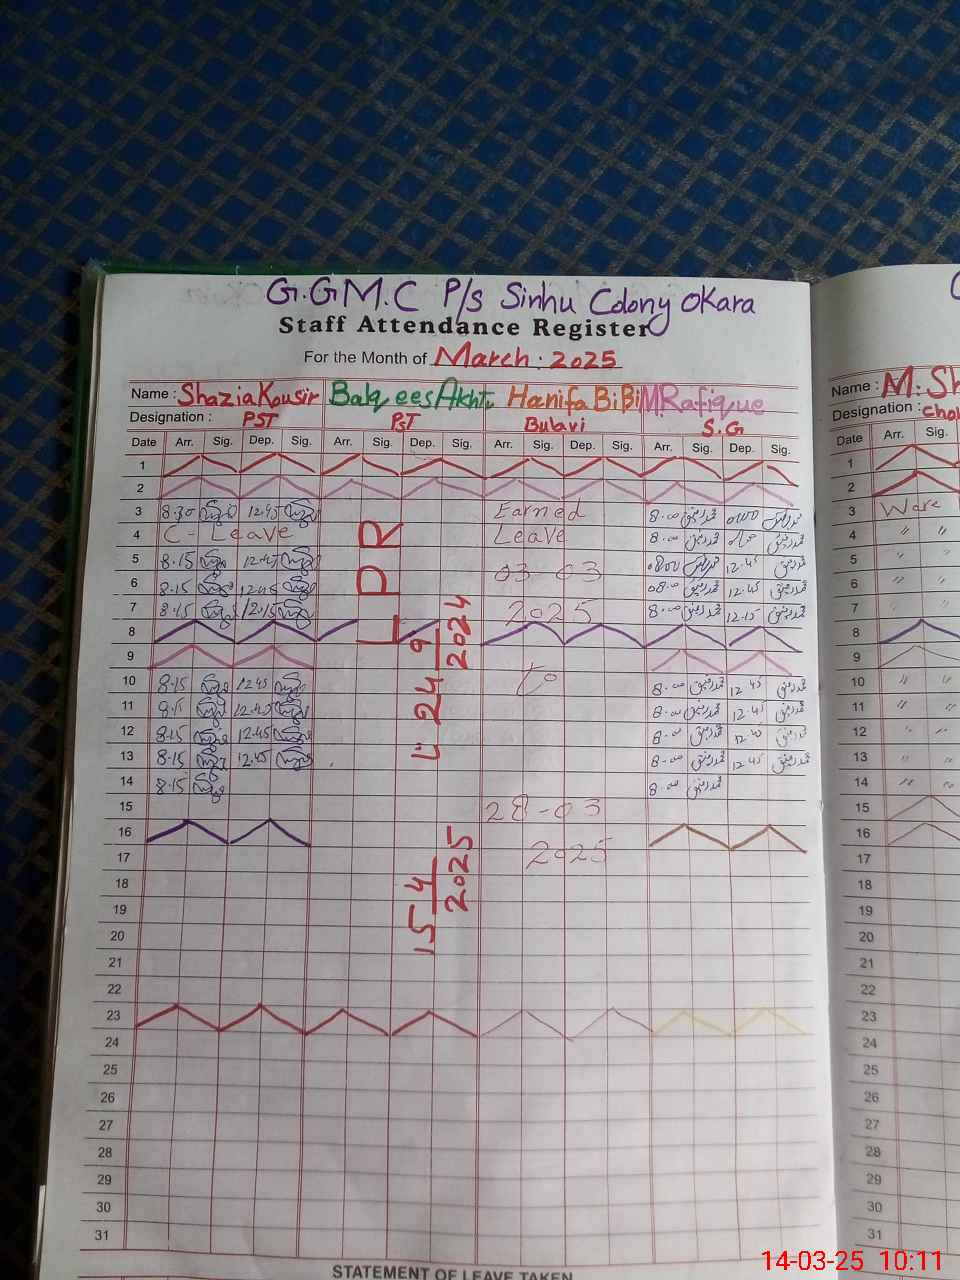 G.GM.C P/s Sinhu Colony Okara
Staff Attendance Register
For the Month of March: 2025
Name : Shazia Kousir Balqees Akhtr Hanifa BiBi M.Rafique
Designation : PST PST Bulavi S.G
Date Arr. Sig. Dep. Sig. Arr. Sig. Dep. Sig. Arr. Sig. Dep. Sig. Arr. Sig. Dep. Sig.
1
2
3 8.30 12.45 Earned 8.00 محمد رفیق
4 C - Leave Leave 8.00 محمد رفیق
5 8.15 12.45 03-03 08.00 12.45
6 8.15 12.45 08.00 محمد رفیق 12.45
7 8.15 12.15 2025 8.00 محمد رفیق 12.15
8
9
10 8.15 12.45 to 8.00 محمد رفیق 12.45
11 8.15 12.45 8.00 محمد رفیق 12.45
12 8.15 12.45 8.00 محمد رفیق 12.40
13 8.15 12.45 8.00 محمد رفیق 12.45
14 8.15 8.00 محمد رفیق
15 28-03
16
17 2025
18
19
20
21
22
23
24
25
26
27
28
29
30
31
LPR
24 9 2024
15 4 2025
STATEMENT OF LEAVE TAKEN
Name : M.Sh
Designation : Cho
Date Arr. Sig.
1
2
3 Ware
4 " "
5 " "
6 " "
7 " "
8
9
10 " "
11 " "
12 " "
13 " "
14 " "
15
16
17
18
19
20
21
22
23
24
25
26
27
28
29
30
31
14-03-25 10:11